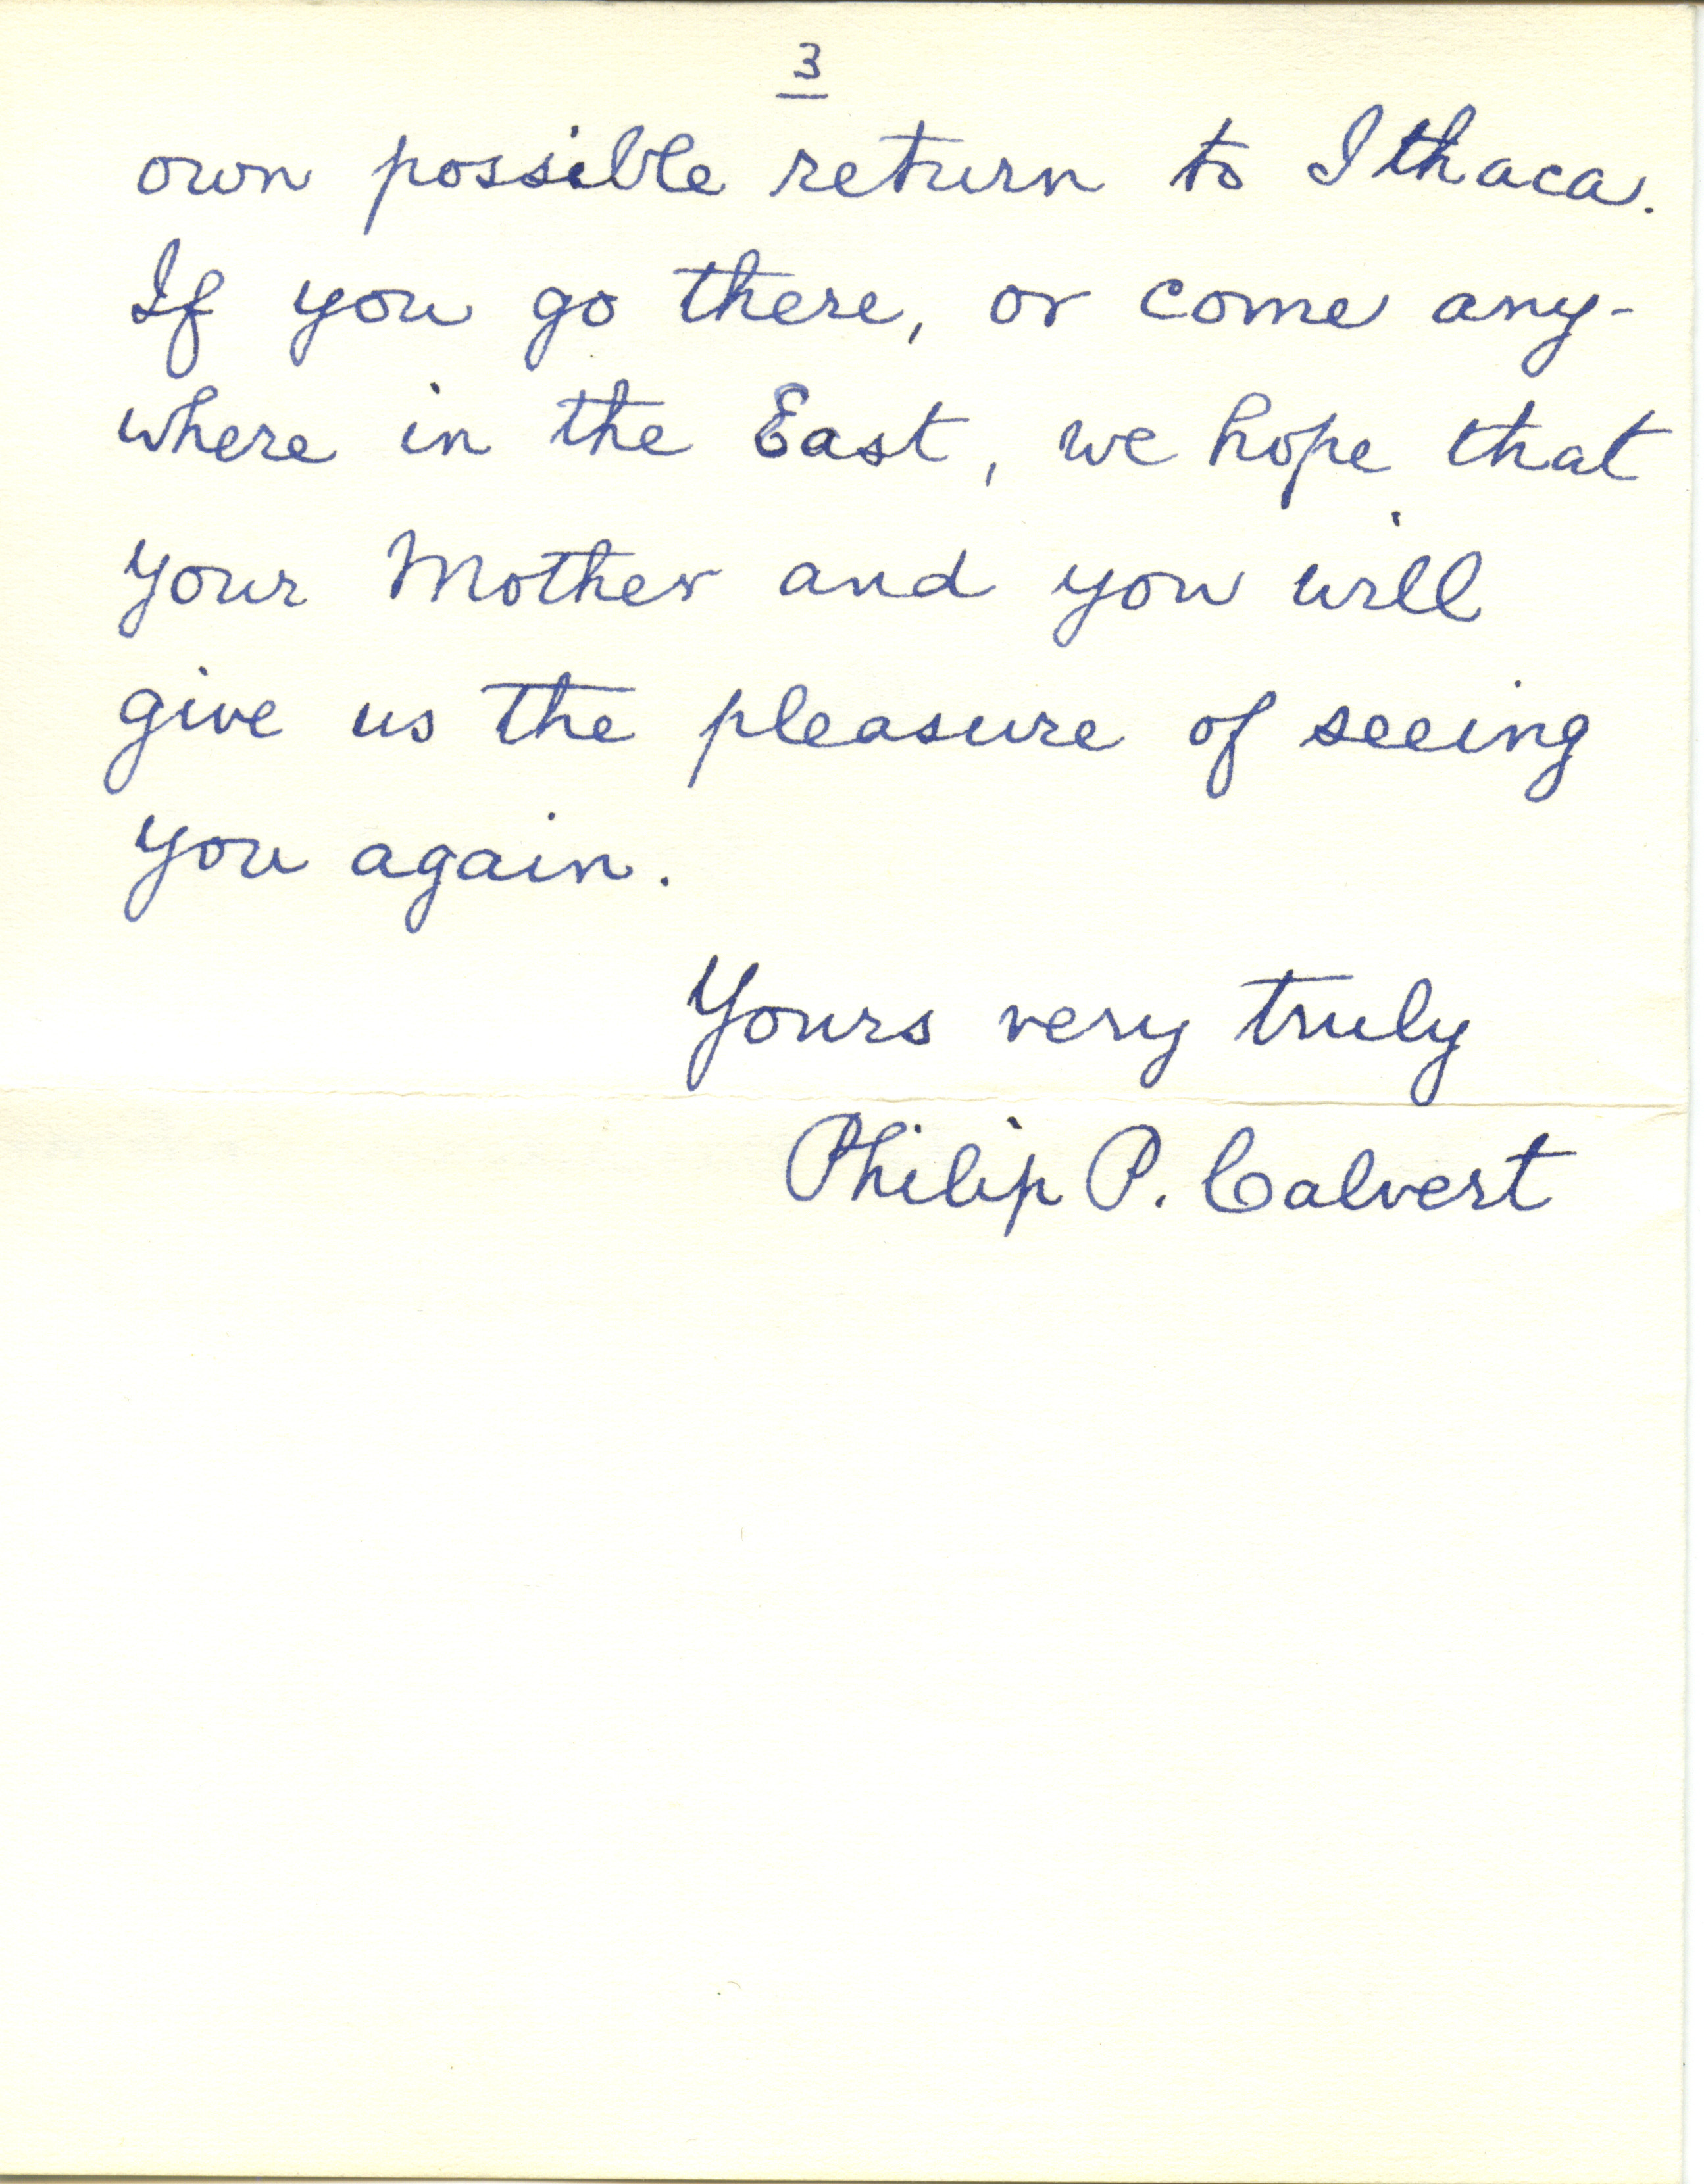 3
own possible return to Ithaca.
If you go there, or come any-
where in the East, we hope that
your Mother and you will
give us the pleasure of seeing
you again.
Yours very truly
Philip P. Calvert